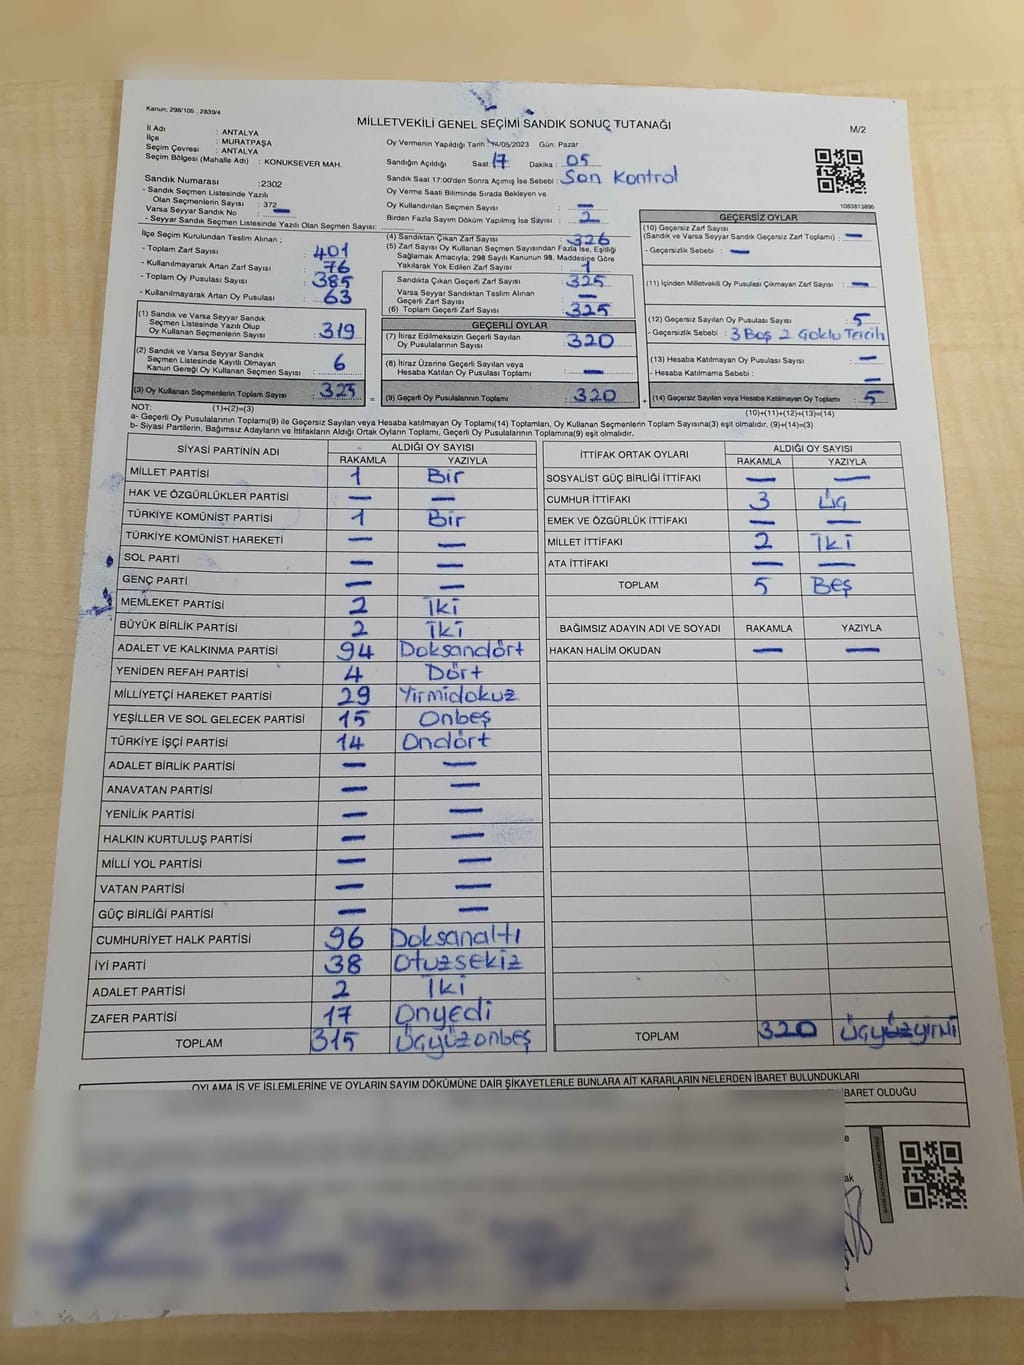 Kanun: 298/105 , 2839/4
MİLLETVEKİLİ GENEL SEÇİMİ SANDIK SONUÇ TUTANAĞI
M/2
İl Adı : ANTALYA
İlçe : MURATPAŞA
Seçim Çevresi : ANTALYA
Seçim Bölgesi (Mahalle Adı) : KONUKSEVER MAH.
Sandık Numarası :2302
- Sandık Seçmen Listesinde Yazılı
Olan Seçmenlerin Sayısı : 372
Varsa Seyyar Sandık No : —
- Seyyar Sandık Seçmen Listesinde Yazılı Olan Seçmen Sayısı:
Oy Vermenin Yapıldığı Tarih : 14/05/2023 Gün: Pazar
Sandığın Açıldığı Saat: 17 Dakika : 05
Sandık Saat 17:00'den Sonra Açımış İse Sebebi : Son Kontrol
Oy Verme Saati Bitiminde Sırada Bekleyen ve
Oy Kullandırılan Seçmen Sayısı : —
Birden Fazla Sayım Döküm Yapılmış İse Sayısı : 2
1083813895
İlçe Seçim Kurulundan Teslim Alınan ;
- Toplam Zarf Sayısı : 401
- Kullanılmayarak Artan Zarf Sayısı : 76
- Toplam Oy Pusulası Sayısı : 385
- Kullanılmayarak Artan Oy Pusulası : 63
(1) Sandık ve Varsa Seyyar Sandık
Seçmen Listesinde Yazılı Olup
Oy Kullanan Seçmenlerin Sayısı : 319
(2) Sandık ve Varsa Seyyar Sandık
Seçmen Listesinde Kayıtlı Olmayan
Kanun Gereği Oy Kullanan Seçmen Sayısı : 6
(3) Oy Kullanan Seçmenlerin Toplam Sayısı : 325
(4) Sandıktan Çıkan Zarf Sayısı : 326
(5) Zarf Sayısı Oy Kullanan Seçmen Sayısından Fazla İse, Eşitliği
Sağlamak Amacıyla; 298 Sayılı Kanunun 98. Maddesine Göre
Yakılarak Yok Edilen Zarf Sayısı : 1
Sandıkta Çıkan Geçerli Zarf Sayısı : 325
Varsa Seyyar Sandıktan Teslim Alınan
Geçerli Zarf Sayısı : —
(6) Toplam Geçerli Zarf Sayısı : 325
GEÇERLİ OYLAR
(7) İtiraz Edilmeksizin Geçerli Sayılan
Oy Pusulalarının Sayısı : 320
(8) İtiraz Üzerine Geçerli Sayılan veya
Hesaba Katılan Oy Pusulası Toplamı : —
= (9) Geçerli Oy Pusulalarının Toplamı : 320
GEÇERSİZ OYLAR
(10) Geçersiz Zarf Sayısı
(Sandık ve Varsa Seyyar Sandık Geçersiz Zarf Toplamı) : —
- Geçersizlik Sebebi : —
(11) İçinden Milletvekili Oy Pusulası Çıkmayan Zarf Sayısı : —
(12) Geçersiz Sayılan Oy Pusulası Sayısı : 5
- Geçersizlik Sebebi : 3 Boş 2 Çoklu Tercih
(13) Hesaba Katılmayan Oy Pusulası Sayısı : —
- Hesaba Katılmama Sebebi : —
+ (14) Geçersiz Sayılan veya Hesaba Katılmayan Oy Toplamı : 5
NOT: (1)+(2)=(3)
(10)+(11)+(12)+(13)=(14)
a- Geçerli Oy Pusulalarının Toplamı(9) ile Geçersiz Sayılan veya Hesaba katılmayan Oy Toplamı(14) Toplamları, Oy Kullanan Seçmenlerin Toplam Sayısına(3) eşit olmalıdır. (9)+(14)=(3)
b- Siyasi Partilerin, Bağımsız Adayların ve İttifakların Aldığı Ortak Oyların Toplamı, Geçerli Oy Pusulalarının Toplamına(9) eşit olmalıdır.
SİYASİ PARTİNİN ADI ALDIĞI OY SAYISI
RAKAMLA YAZIYLA
MİLLET PARTİSİ 1 Bir
HAK VE ÖZGÜRLÜKLER PARTİSİ — —
TÜRKİYE KOMÜNİST PARTİSİ 1 Bir
TÜRKİYE KOMÜNİST HAREKETİ — —
SOL PARTİ — —
GENÇ PARTİ — —
MEMLEKET PARTİSİ 2 İki
BÜYÜK BİRLİK PARTİSİ 2 İki
ADALET VE KALKINMA PARTİSİ 94 Doksandört
YENİDEN REFAH PARTİSİ 4 Dört
MİLLİYETÇİ HAREKET PARTİSİ 29 Yirmidokuz
YEŞİLLER VE SOL GELECEK PARTİSİ 15 Onbeş
TÜRKİYE İŞÇİ PARTİSİ 14 Ondört
ADALET BİRLİK PARTİSİ — —
ANAVATAN PARTİSİ — —
YENİLİK PARTİSİ — —
HALKIN KURTULUŞ PARTİSİ — —
MİLLİ YOL PARTİSİ — —
VATAN PARTİSİ — —
GÜÇ BİRLİĞİ PARTİSİ — —
CUMHURİYET HALK PARTİSİ 96 Doksanaltı
İYİ PARTİ 38 Otuzsekiz
ADALET PARTİSİ 2 İki
ZAFER PARTİSİ 17 Onyedi
TOPLAM 315 Üçyüzonbeş
İTTİFAK ORTAK OYLARI ALDIĞI OY SAYISI
RAKAMLA YAZIYLA
SOSYALİST GÜÇ BİRLİĞİ İTTİFAKI — —
CUMHUR İTTİFAKI 3 Üç
EMEK VE ÖZGÜRLÜK İTTİFAKI — —
MİLLET İTTİFAKI 2 İki
ATA İTTİFAKI — —
TOPLAM 5 Beş
BAĞIMSIZ ADAYIN ADI VE SOYADI RAKAMLA YAZIYLA
HAKAN HALİM OKUDAN — —
TOPLAM 320 Üçyüzyirmi
OYLAMA İŞ VE İŞLEMLERİNE VE OYLARIN SAYIM DÖKÜMÜNE DAİR ŞİKAYETLERLE BUNLARA AİT KARARLARIN NELERDEN İBARET BULUNDUKLARI
İBARET OLDUĞU